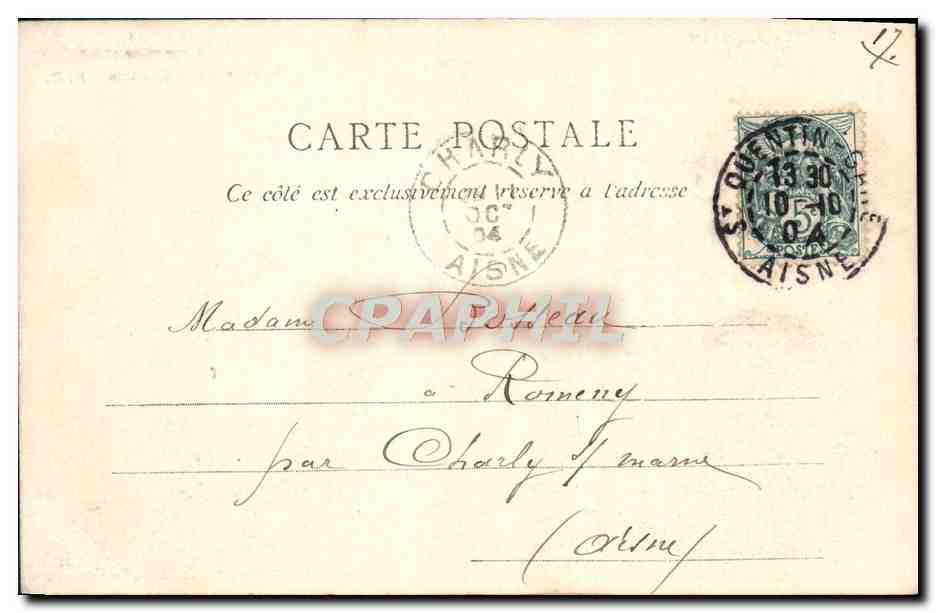 17.
CARTE POSTALE
Ce côté est exclusivement réservé a l'adresse
CHARLY
OCT
04
AISNE
ST QUENTIN-GARE
13 30
10-10
04
AISNE
5c
POSTES
CPAPHIL
Madame
à Romeny
par Charly s/ marne
(Aisne)